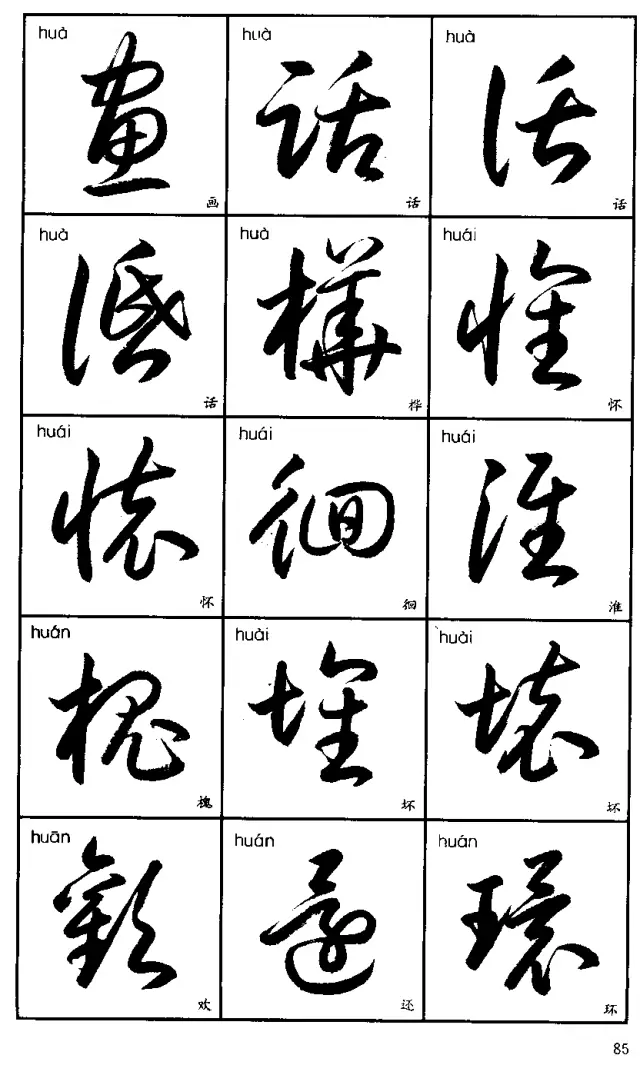 huà huà huà
畫 話 話
画 话 话
huà huà huái
話 樺 懷
话 桦 怀
huái huái huái
懷 徊 淮
怀 徊 淮
huán huài huài
槐 壞 壞
槐 坏 坏
huān huán huán
歡 還 環
欢 还 环
85